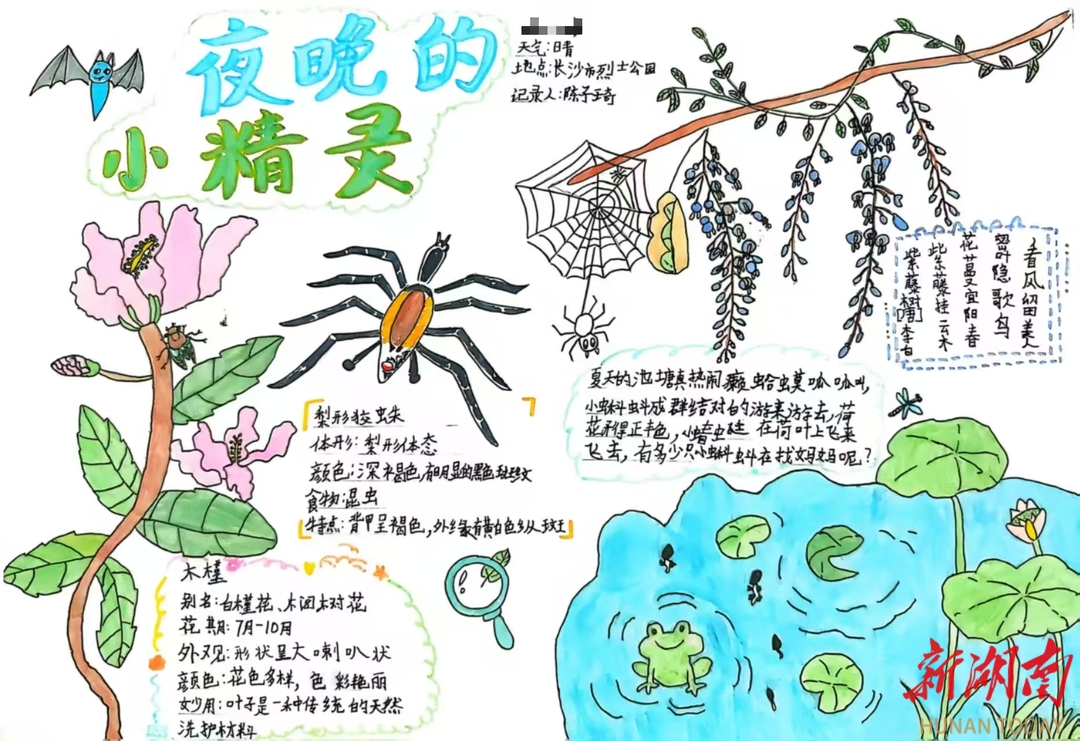 夜晚的
小精灵
天气:晴
地点:长沙市烈士公园
记录人:陈子琦
紫藤树[唐]李白
紫藤挂云木
花蔓宜阳春
密叶隐歌鸟
春风留美人
梨形狡蛛
体形:梨形体态
颜色:深褐色,有明显的黑色斑纹
食物:昆虫
特点:背甲呈褐色,外缘有黄白色纵斑
夏天的池塘真热闹癞蛤蟆呱呱叫,
小蝌蚪成群结对的游来游去,荷
花开得正丰色,小蜻蜓在荷叶上飞来
飞去,有多少只小蝌蚪在找妈妈呢?
木槿
别名:白槿花、
花期:7月-10月
外观:形状呈大喇叭状
颜色:花色多样,色彩艳丽
妙用:叶子是一种传统的天然
洗护材料
新湖南
HUNAN TODAY